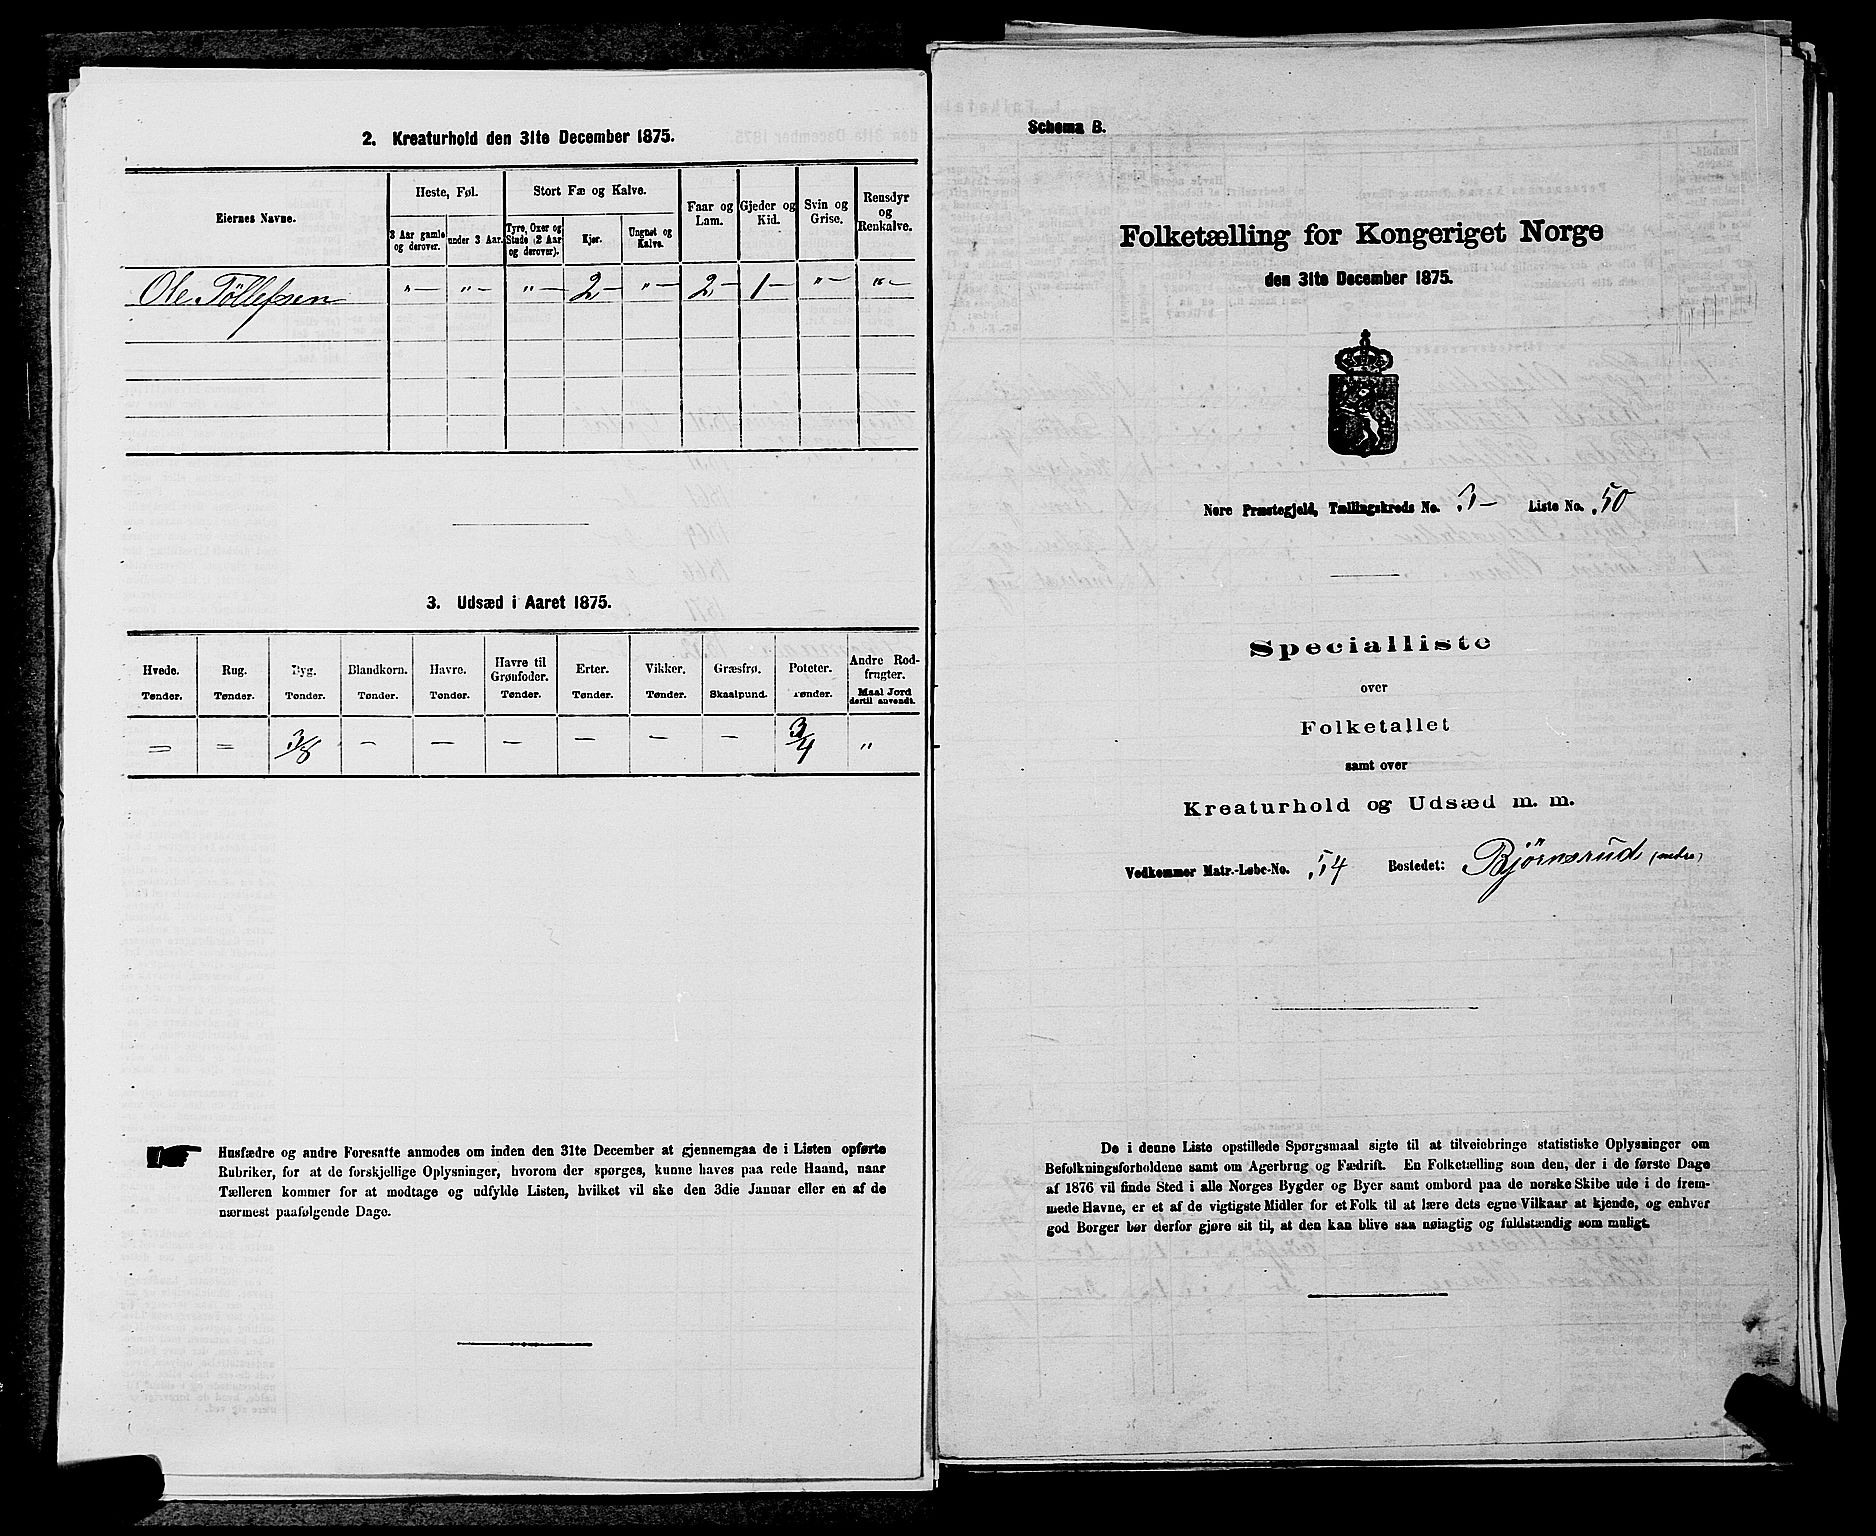 2. Kreaturhold den 31te December 1875.
Eiernes Navne.
Heste, Føl.
Stort Fæ og Kalve.
Faar og Lam.
Gjeder og Kid.
Svin og Grise.
Rensdyr og Renkalve.
3 Aar gamle og derover.
under 3 Aar.
Tyre, Oxer og Stude (2 Aar og derover).
Kjør.
Ungnøt og Kalve.
Ole Tøllefsen " — " — " — 2 — " — 2 — 1 — " — " —
3. Udsæd i Aaret 1875.
Hvede. Rug. Byg. Blandkorn. Havre. Havre til Grønfoder. Erter. Vikker. Græsfrø. Poteter. Andre Rodfrugter.
Tønder. Tønder. Tønder. Tønder. Tønder. Tønder. Tønder. Tønder. Skaalpund. Tønder. Maal Jord dertil anvendt.
= = 3/8 — — — — — — 3/4 "
Husfædre og andre Foresatte anmodes om inden den 31te December at gjennemgaa de i Listen opførte
Rubriker, for at de forskjellige Oplysninger, hvorom der spørges, kunne haves paa rede Haand, naar
Tælleren kommer for at modtage og udfylde Listen, hvilket vil ske den 3die Januar eller en af de
nærmest paafølgende Dage.
Schema B.
Folketælling for Kongeriget Norge
den 31te December 1875.
Nore Præstegjeld, Tællingskreds No. 3 — Liste No. 50
Specialliste
over
Folketallet
samt over
Kreaturhold og Udsæd m. m.
Vedkommer Matr.-Løbe-No. 54 Bostedet: Bjørnerud (nedre)
De i denne Liste opstillede Spørgsmaal sigte til at tilveiebringe statistiske Oplysninger om
Befolkningsforholdene samt om Agerbrug og Fædrift. En Folketælling som den, der i de første Dage
af 1876 vil finde Sted i alle Norges Bygder og Byer samt ombord paa de norske Skibe ude i de frem-
mede Havne, er et af de vigtigste Midler for et Folk til at lære dets egne Vilkaar at kjende, og enhver
god Borger bør derfor gjøre sit til, at den kan blive saa nøiagtig og fuldstændig som muligt.